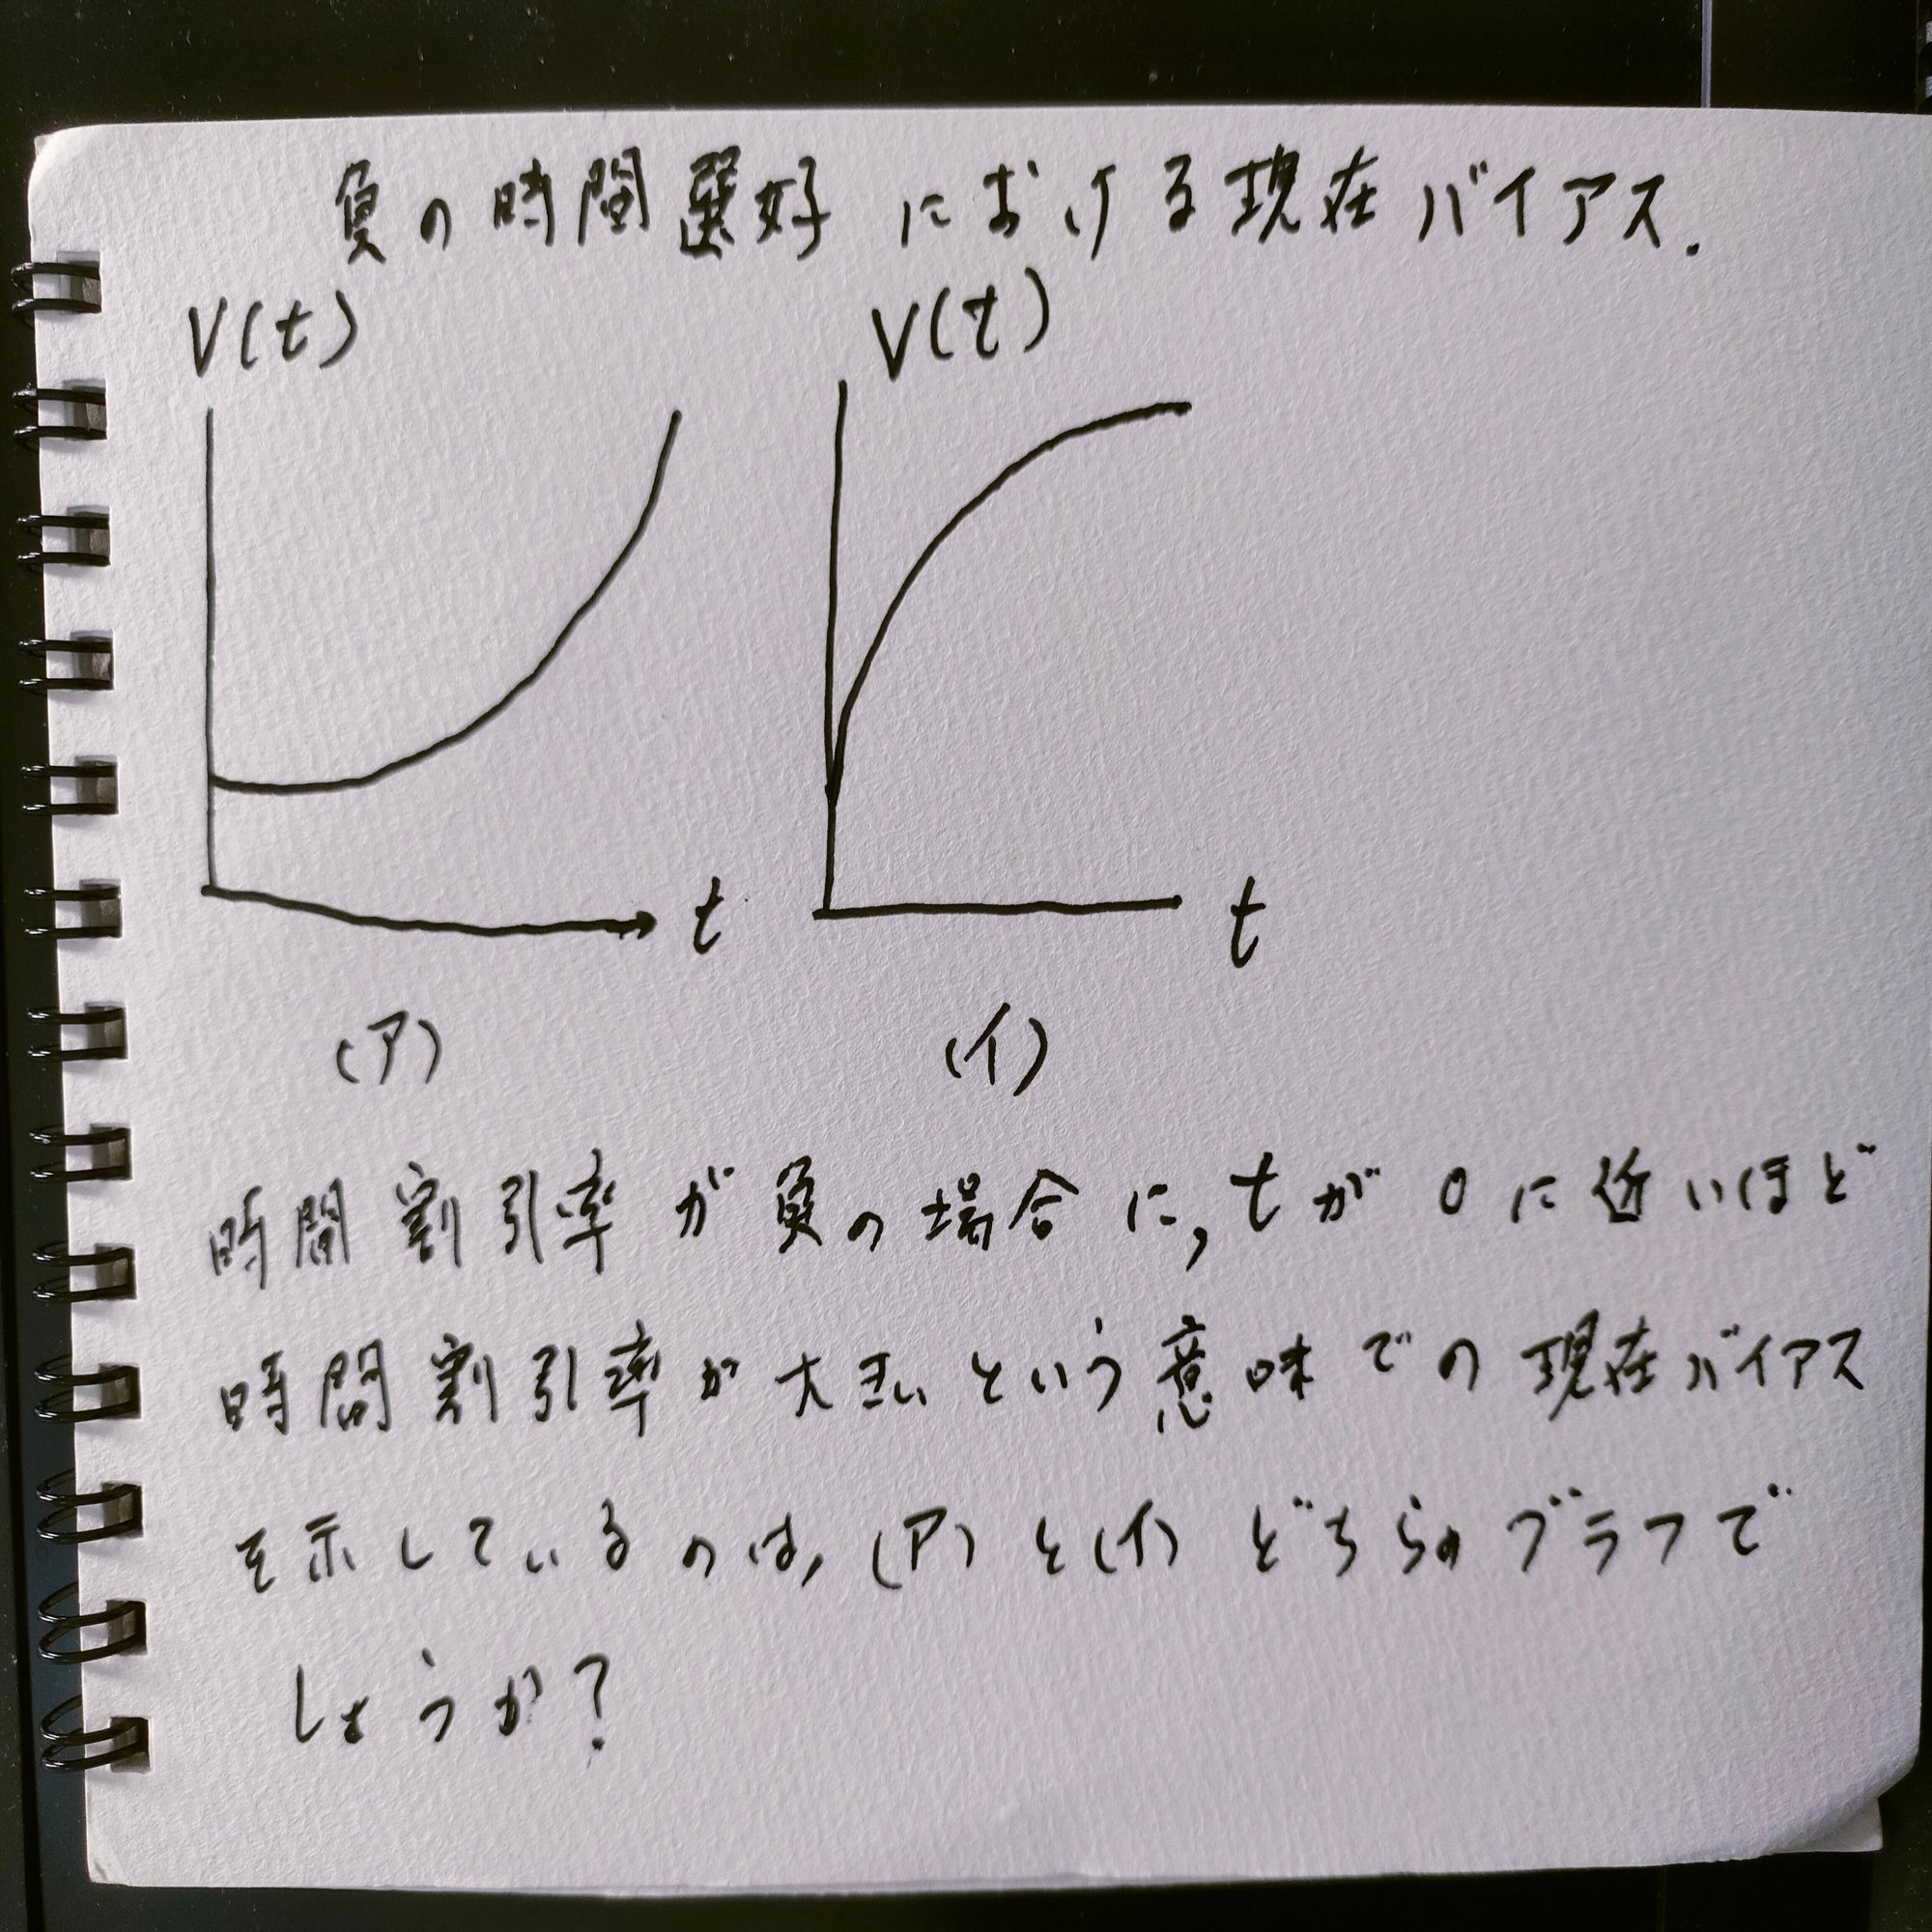 負の時間選好における現在バイアス.
V(t)
V(t)
t
t
(ア)
(イ)
時間割引率が負の場合に,tが0に近いほど
時間割引率が大きいという意味での現在バイアス
を示しているのは,(ア)と(イ)どちらのグラフで
しょうか?